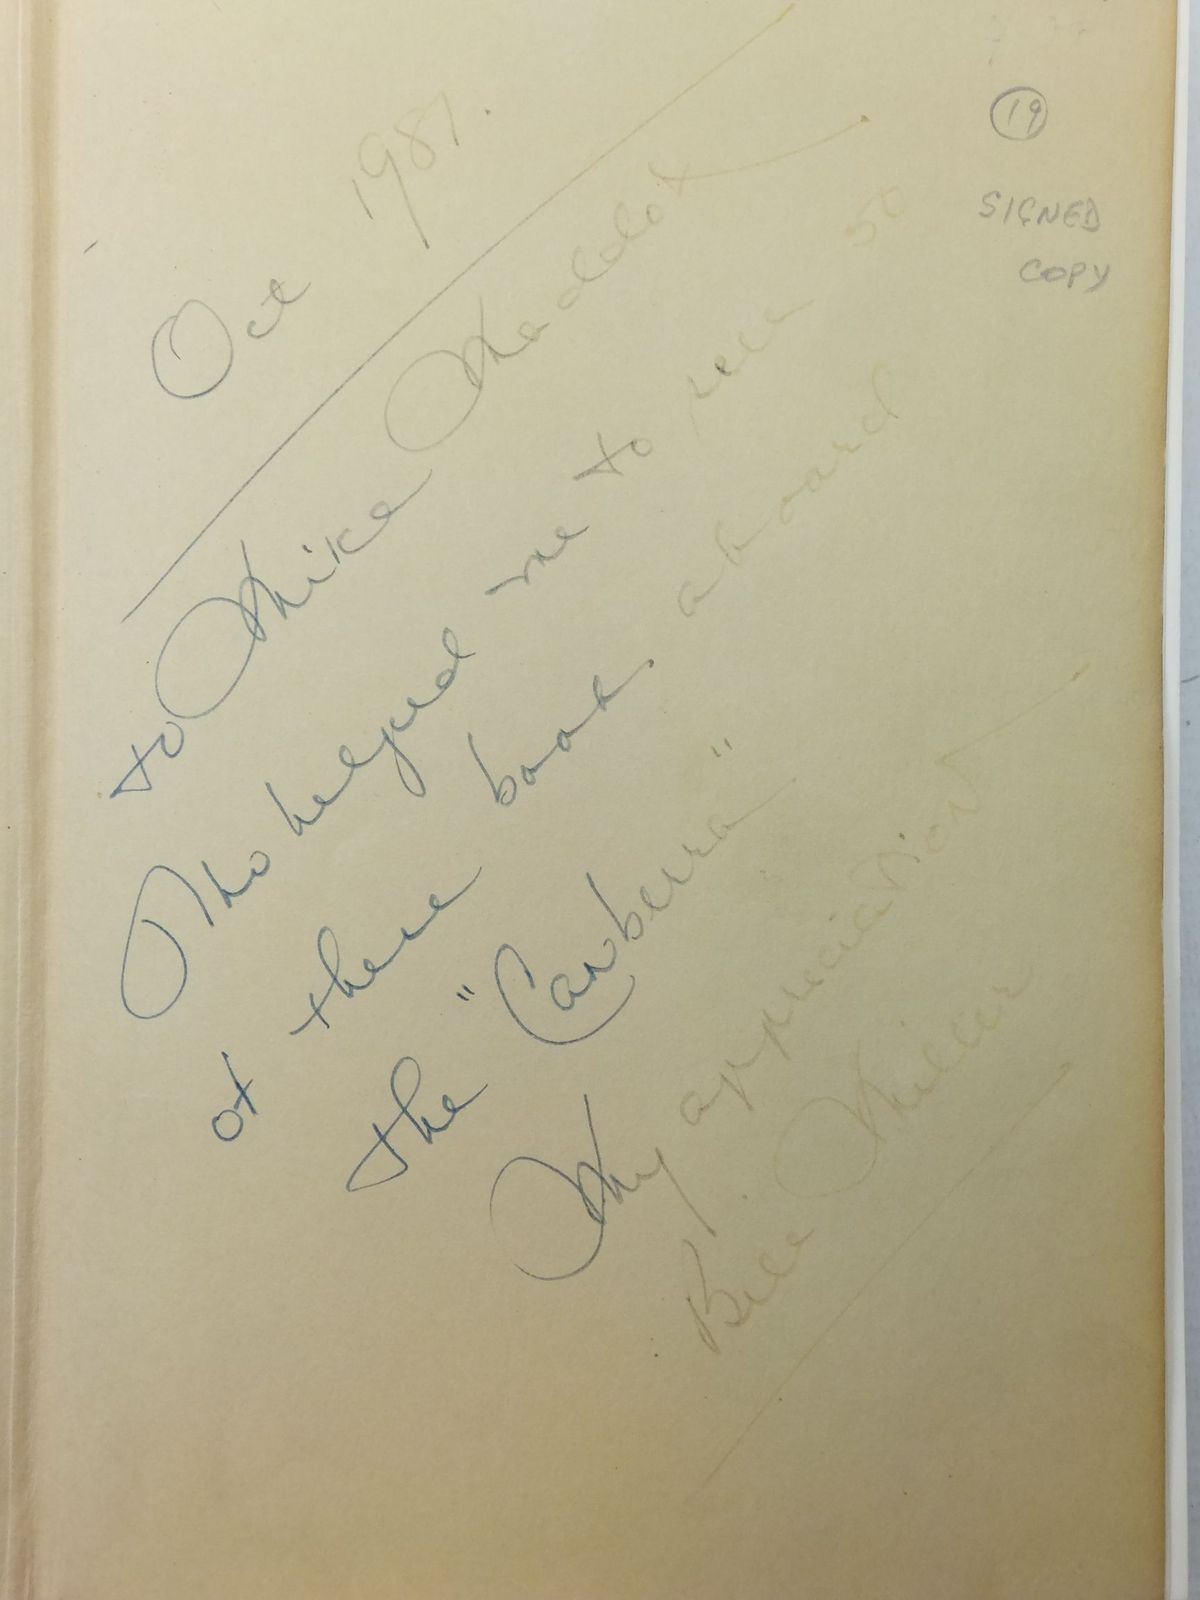 19
SIGNED
COPY
Oct 1981.
to Mike Maddox
Who helped me to sell 50
of these books aboard
the "Canberra"
My appreciation
Bill Miller